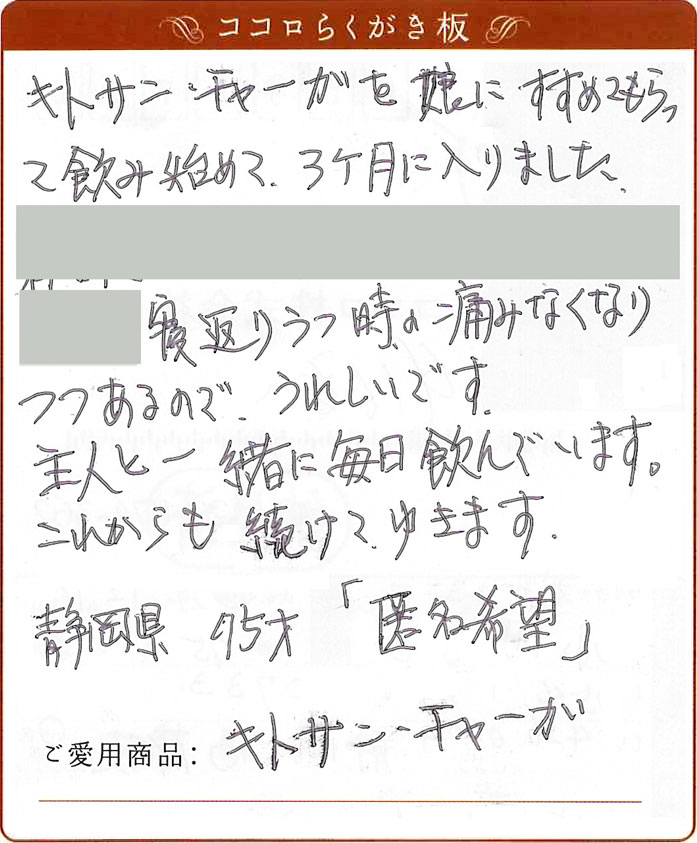 ココロらくがき板
キトサン・チャーガを娘にすすめてもらっ
て飲み始めて、3ケ月に入りました、
寝返りうつ時の痛みなくなり
つつあるので、うれしいです。
主人と一緒に毎日飲んでいます。
これからも続けてゆきます。
静岡県 75才「匿名希望」
ご愛用商品: キトサン・チャーガ